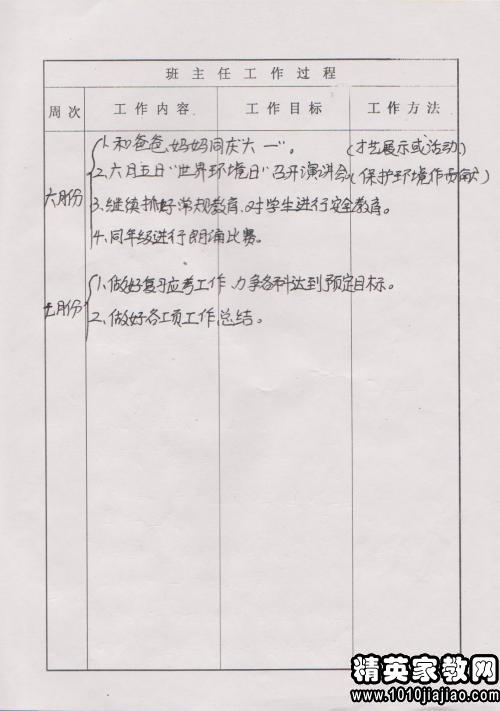 班主任工作过程
周次 工作内容 工作目标 工作方法
六月份
1、和爸爸、妈妈同庆"六一"。(才艺展示或活动)
2、六月五日"世界环境日"召开演讲会(保护环境作贡献)
3、继续抓好常规教育、对学生进行安全教育。
4、同年级进行朗诵比赛。
七月份
1、做好复习应考工作,力争各科达到预定目标。
2、做好各项工作总结。
精英家教网
www.1010jiajiao.com